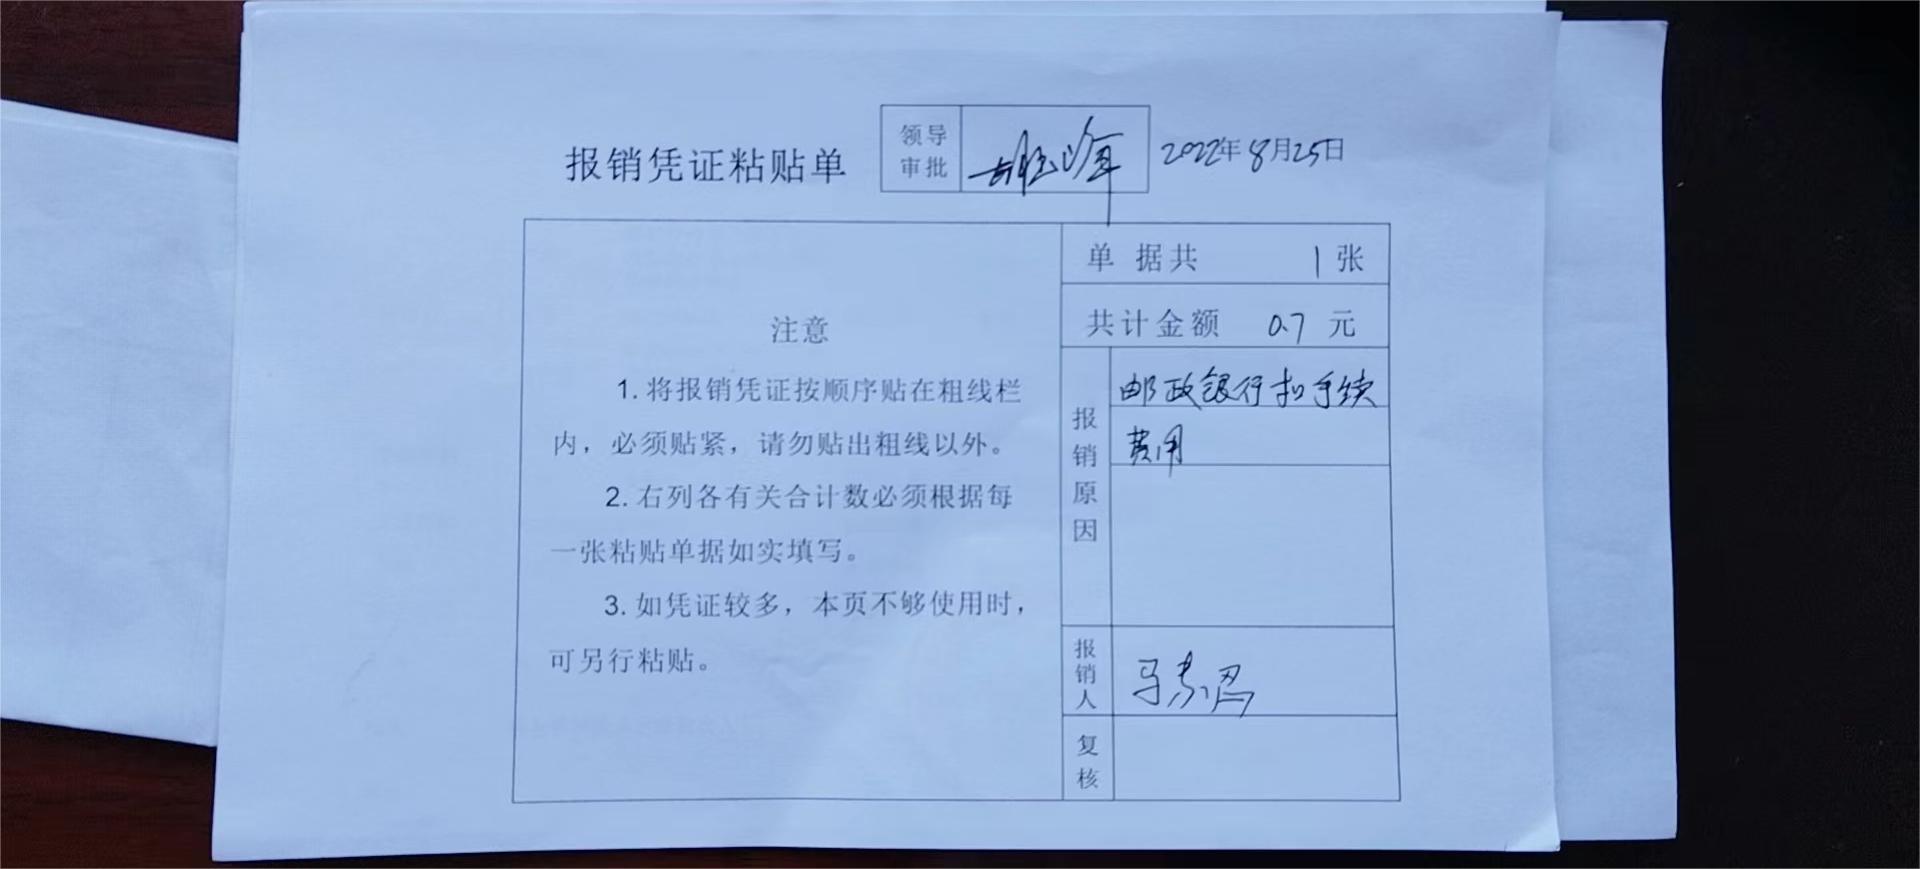 报销凭证粘贴单
领导
审批
2022年8月25日
单据共 1张
共计金额 0.7元
注意
1.将报销凭证按顺序贴在粗线栏
内，必须贴紧，请勿贴出粗线以外。
2.右列各有关合计数必须根据每
一张粘贴单据如实填写。
3.如凭证较多，本页不够使用时，
可另行粘贴。
报销原因
邮政银行扣手续
费用
报销人
复核